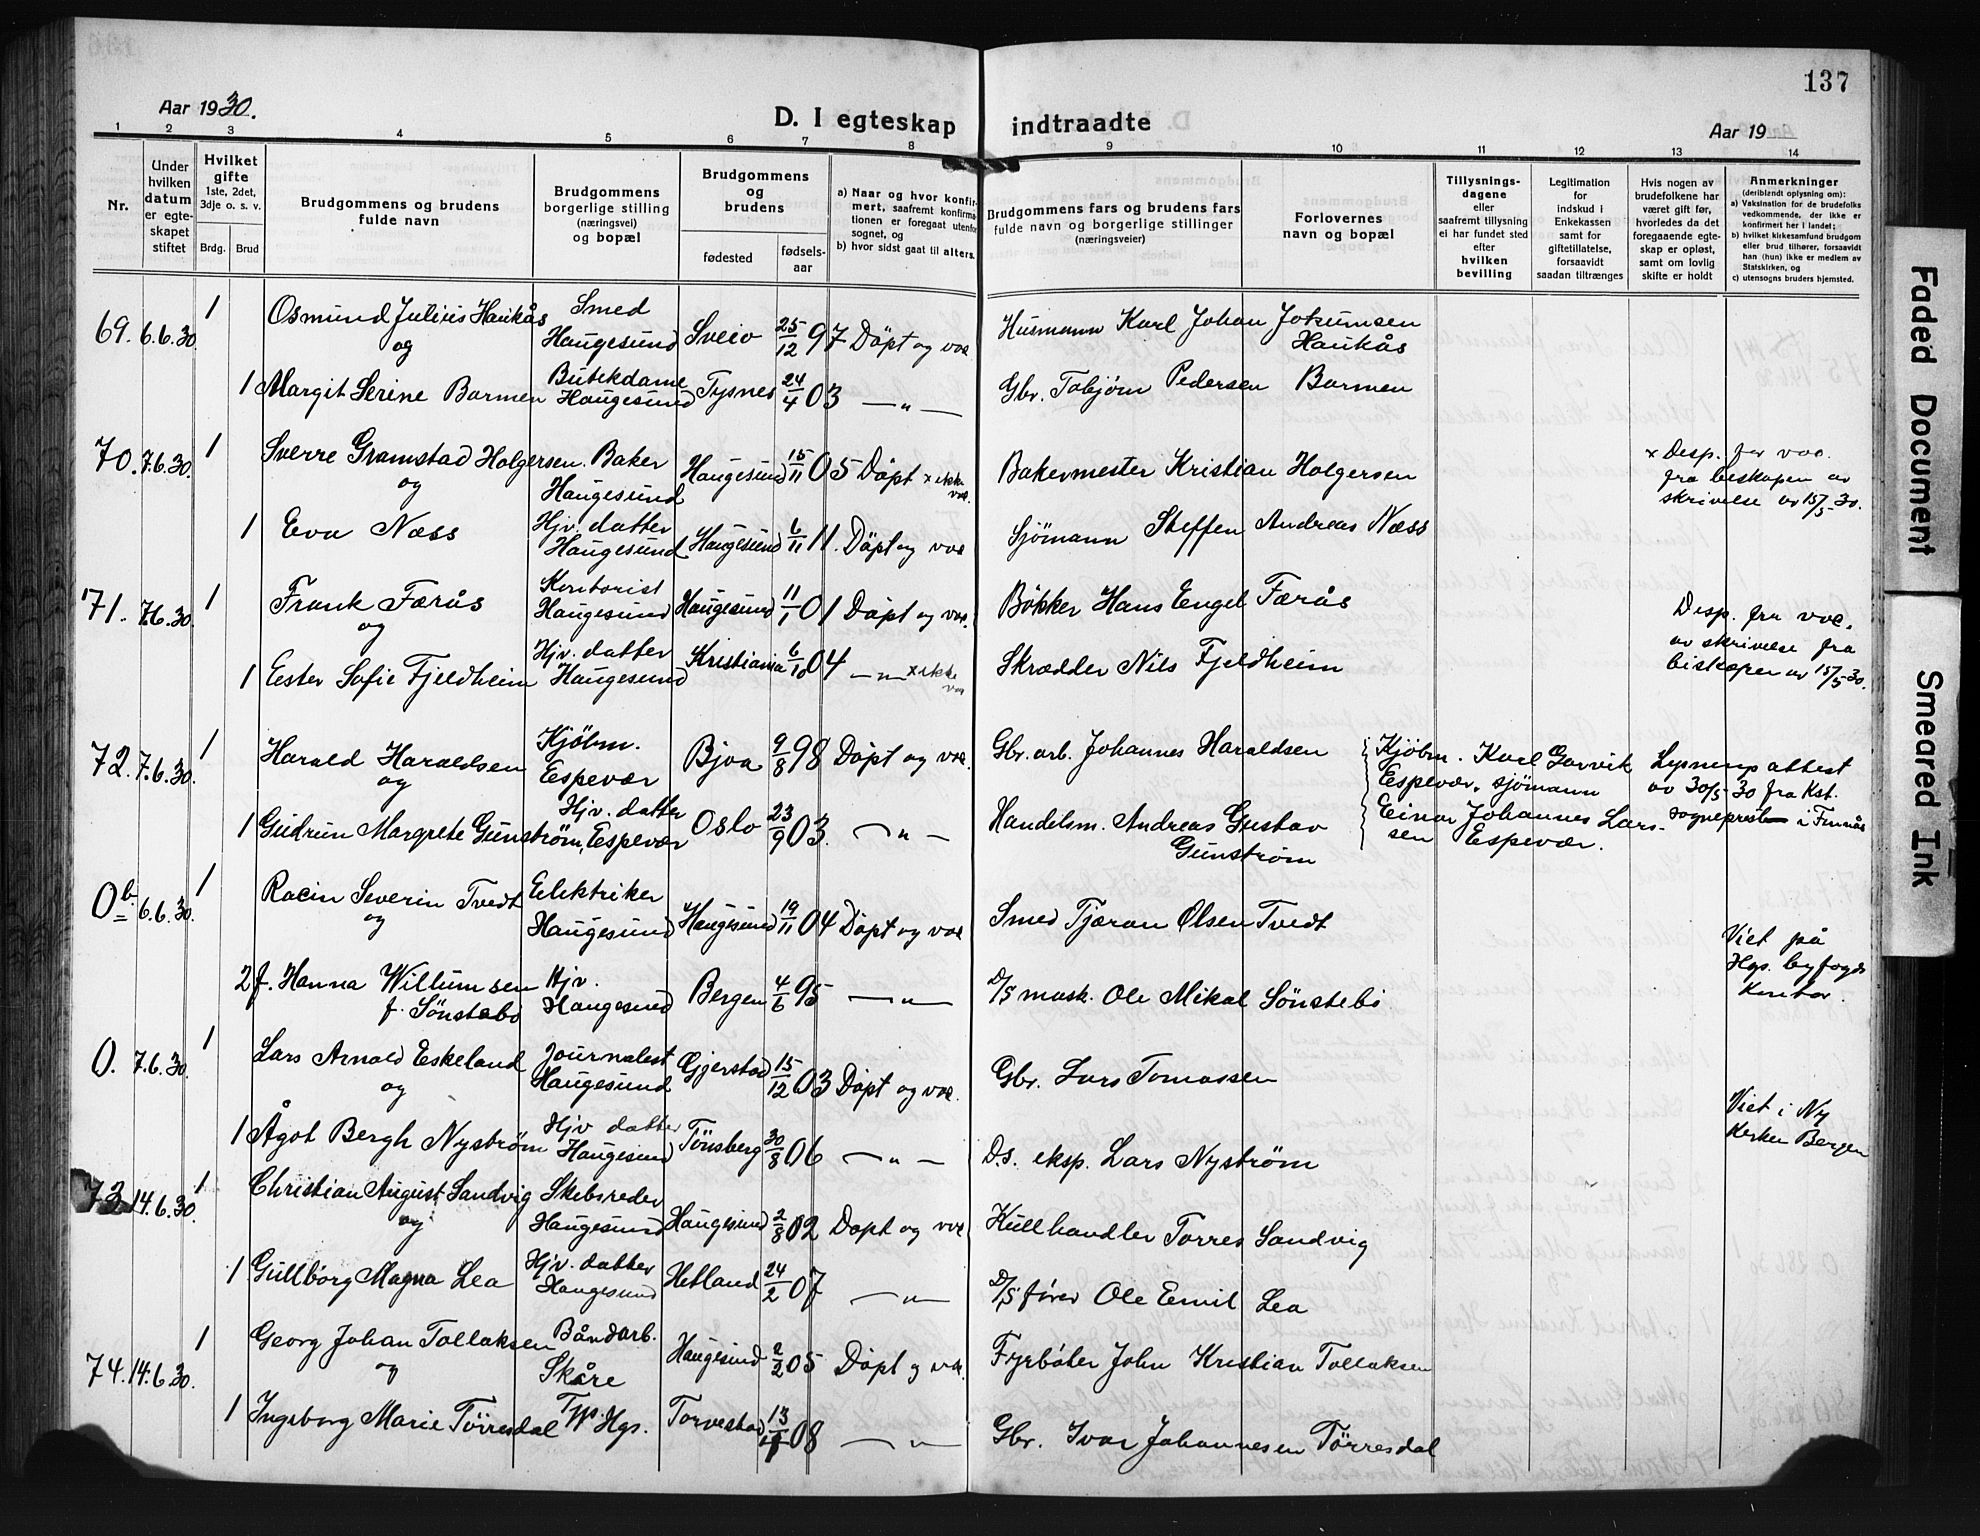 137
Aar 1930.
D. I egteskap indtraadte
Aar 19
1 2 3 4 5 6 7 8 9 10 11 12 13 14
Nr.
Under hvilken datum er egteskapet stiftet
Hvilket gifte
1ste, 2det, 3dje o. s. v.
Brdg. Brud
Brudgommens og brudens fulde navn
Brudgommens borgerlige stilling (næringsvei) og bopæl
Brudgommens og brudens
fødested
fødselsaar
a) Naar og hvor konfirmert, saafremt konfirmationen er foregaat utenfor sognet, og
b) hvor sidst gaat til alters.
Brudgommens fars og brudens fars fulde navn og borgerlige stillinger (næringsveier)
Forlovernes navn og bopæl
Tillysningsdagene eller saafremt tillysning ei har fundet sted efter hvilken bevilling
Legitimation for indskud i Enkekassen samt for giftetillatelse, forsaavidt saadan tiltrænges
Hvis nogen av brudefolkene har været gift før, hvorledes da det foregaaende egteskap er opløst, samt om lovlig skifte er holdt
Anmerkninger
(deriblandt oplysning om):
a) Vaksination for de brudefolks vedkommende, der ikke er konfirmert her i landet;
b) hvilket kirkesamfund brudgom eller brud tilhører, forsaavidt han (hun) ikke er medlem av Statskirken, og
c) utensogns bruders hjemsted.
69. 6.6.30. 1 Osmund Julius Haukås Smed Haugesund Sveio 25/12 97 Döpt og vac. Husmann Karl Johan Jokumsen Haukås
og
1 Margit Serine Barmen Butikdame Haugesund Tysnes 24/4 03 — " — Gbr. Tobjørn Pedersen Barmen
70. 7.6.30. 1 Sverre Gramstad Holgersen. Baker Haugesund Haugesund 15/11 05 Döpt x ikke vac. Bakermester Kristian Holgersen
x Desp. for vac. fra biskopen av skrivelse av 15/5-30.
og
1 Eva Næss Hjv. datter Haugesund Haugesund 6/11 11. Döpt og vac Sjømann Steffen Andreas Næss
71. 7.6.30. 1 Frank Færås Kontorist Haugesund Haugesund 11/1 01 Döpt og vac. Bøkker Hans Engel Færås
Desp. fra vac. av skrivelse fra biskopen av 15/5-30.
og
1 Ester Sofie Fjeldheim Hjv. datter Haugesund Kristiania 6/10 04 — " — x ikke vac Skrædder Nils Fjeldheim
72. 7.6.30. 1 Harald Haraldsen Kjöbm. Espevær Bjoa 9/8 98 Döpt og vac. Gbr. arb. Johannes Haraldsen
Kjöbm. Karl Garvik Espevær, sjömann Einar Johannes Larssen Espevær.
Lysnings attest av 30/5-30 fra Kst. sogneprest i Finnås
og
1 Gudrun Margrete Gunström, Hjv. datter Espevær Oslo 23/9 03. — " — Handelsm. Andreas Gustav Gunström
0b. 6.6.30. 1 Racin Severin Tvedt Elektriker Haugesund Haugesund 19/11 04 Döpt og vac Smed Tjæran Olsen Tvedt
og
2 f. Hanna Willumsen f. Sönstabö Hjv. Haugesund Bergen 4/6 95 — " — D/S mask. Ole Mikal Sönstebö
Viet på Hgs. byfogds kontor.
0. 7.6.30. 1 Lars Arnold Eskeland Journalist Haugesund Gjerstad 15/12 03 Döpt og vac. Gbr. Lars Tomassen
og
1 Ågot Bergh Nyström Hjv datter Haugesund Tönsberg 30/8 06 — " — D.s. eksp. Lars Nyström
Viet i Ny Kirken Bergen
73 14.6.30. 1 Christian August Sandvig Skibsreder Haugesund Haugesund 2/8 02 Dopt og vac Kullhandler Torres Sandvig
og
1 Gullborg Magna Lea Hjv. datter Haugesund Hetland 24/2 07 — " — D/S fører Ole Emil Lea
74. 14.6.30. 1 Georg Johan Tollaksen Båndarb. Skåre Haugesund 2/2 05 Döpt og vac. Fyrböter John Kristian Tollaksen
og
1 Ingeborg Marie Törresdal Hgs. Torvestad 13 08 — " — Gbr. Ivar Johannesen Törresdal
Faded Document
Smeared Ink